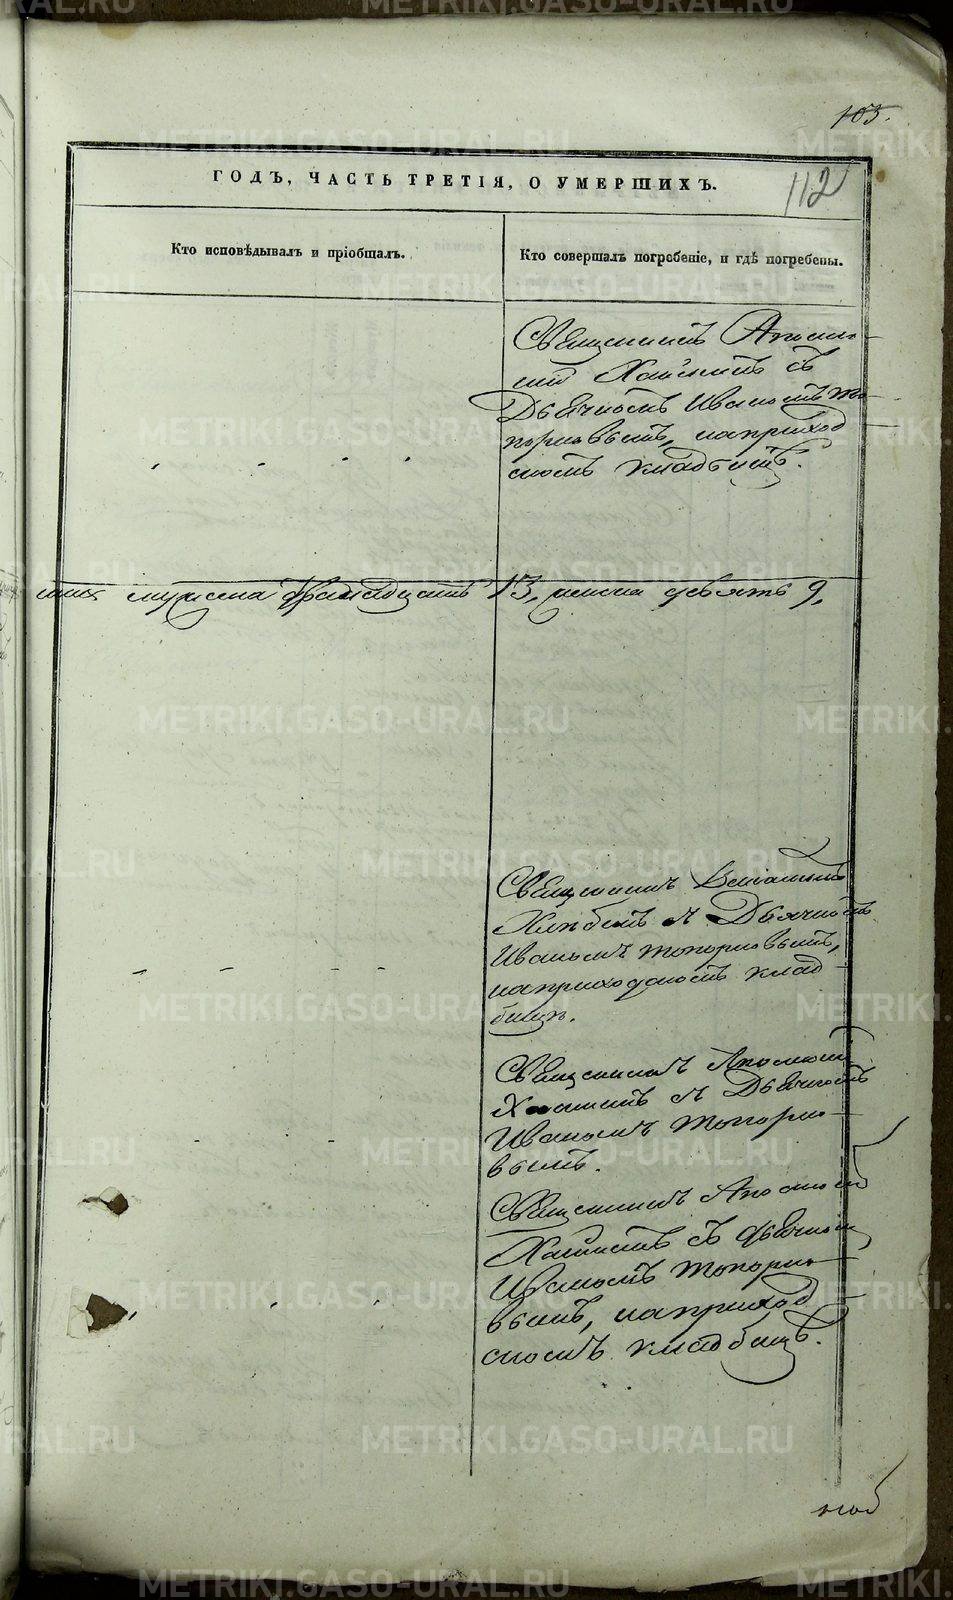 105.
ГОДЪ, ЧАСТЬ ТРЕТІЯ, О УМЕРШИХЪ.
112
Кто исповѣдывалъ и пріобщалъ.
Кто совершалъ погребеніе, и гдѣ погребены.
Священникъ
съ
Дьячкомъ Иваномъ То-
порковымъ, на приход
скомъ кладбищѣ.
мужеска тринадцать 13, женска девять 9,
Священникъ
Хлѣбинъ съ Дьячкомъ
Иваномъ Топорковымъ,
на приходскомъ клад-
бищѣ.
Священникъ
съ Дьячкомъ
Иваномъ Топорко-
вымъ.
Священникъ
съ дьячкомъ
Иваномъ Топорко-
вымъ, на приход
скомъ кладбищѣ.
METRIKI.GASO-URAL.RU